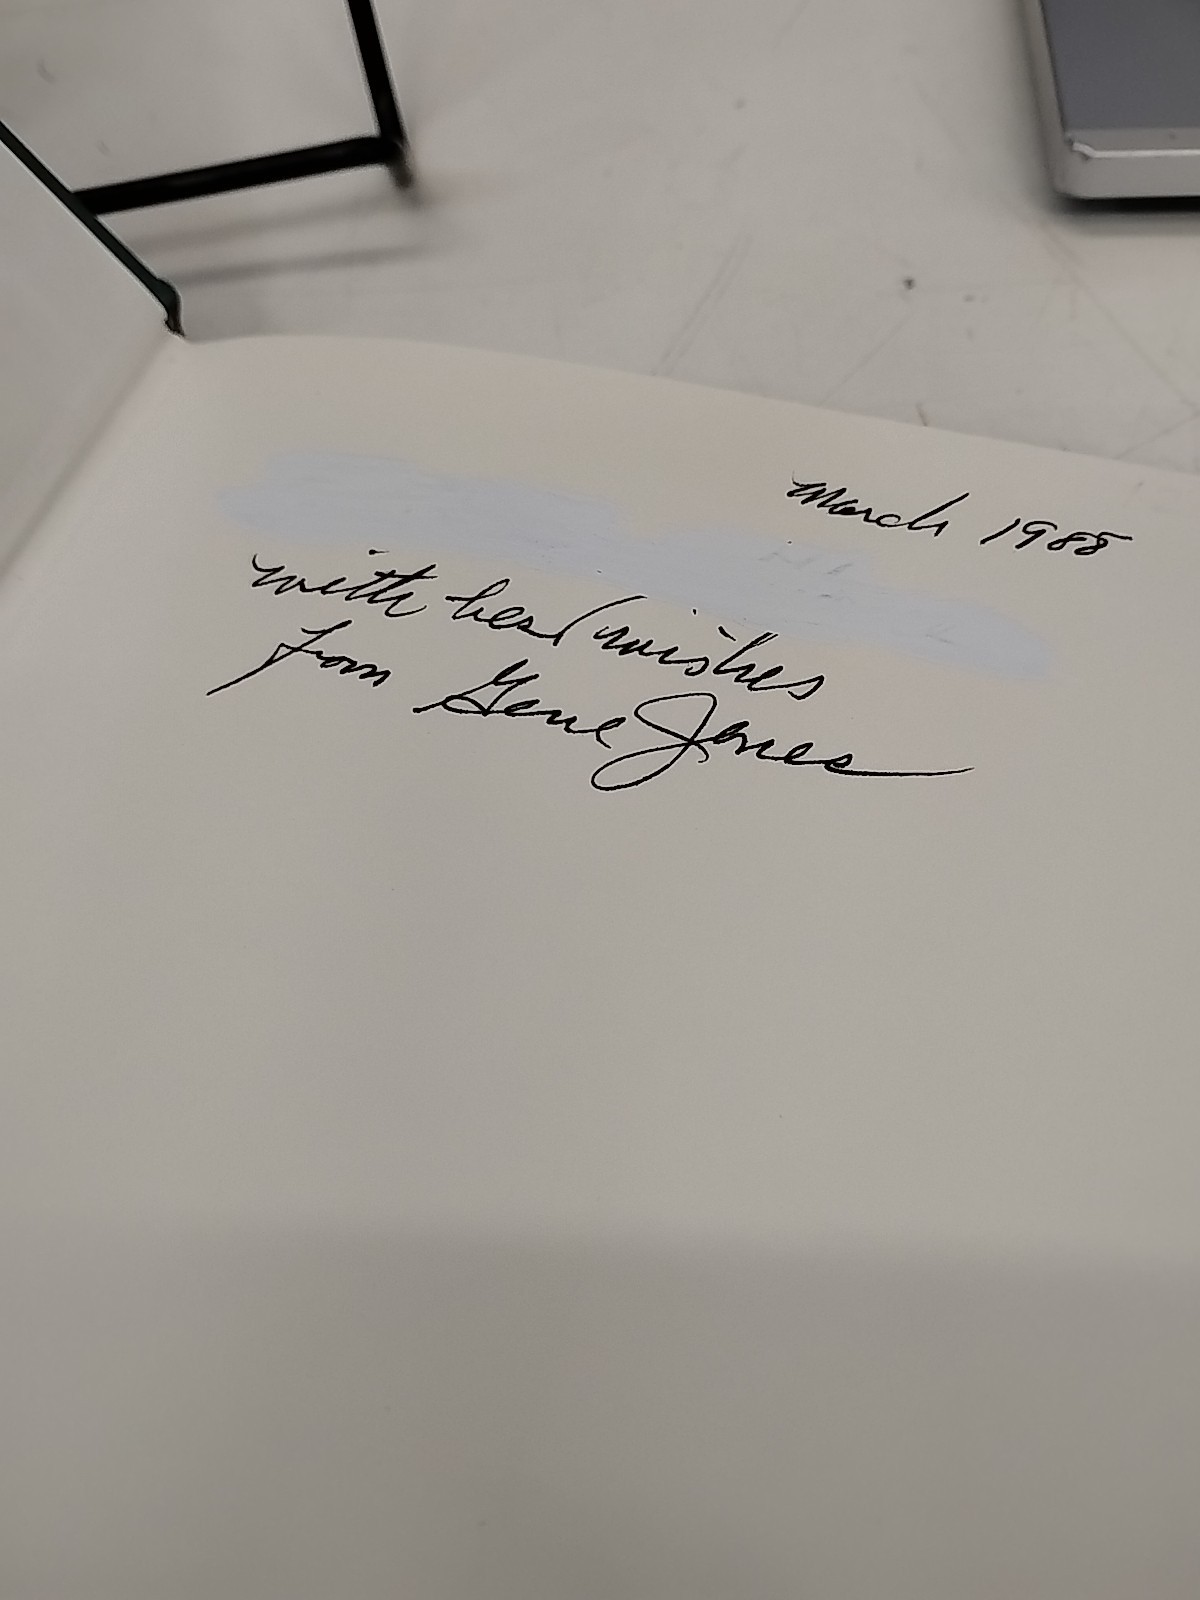 March 1988
with best wishes
from Gene Jones